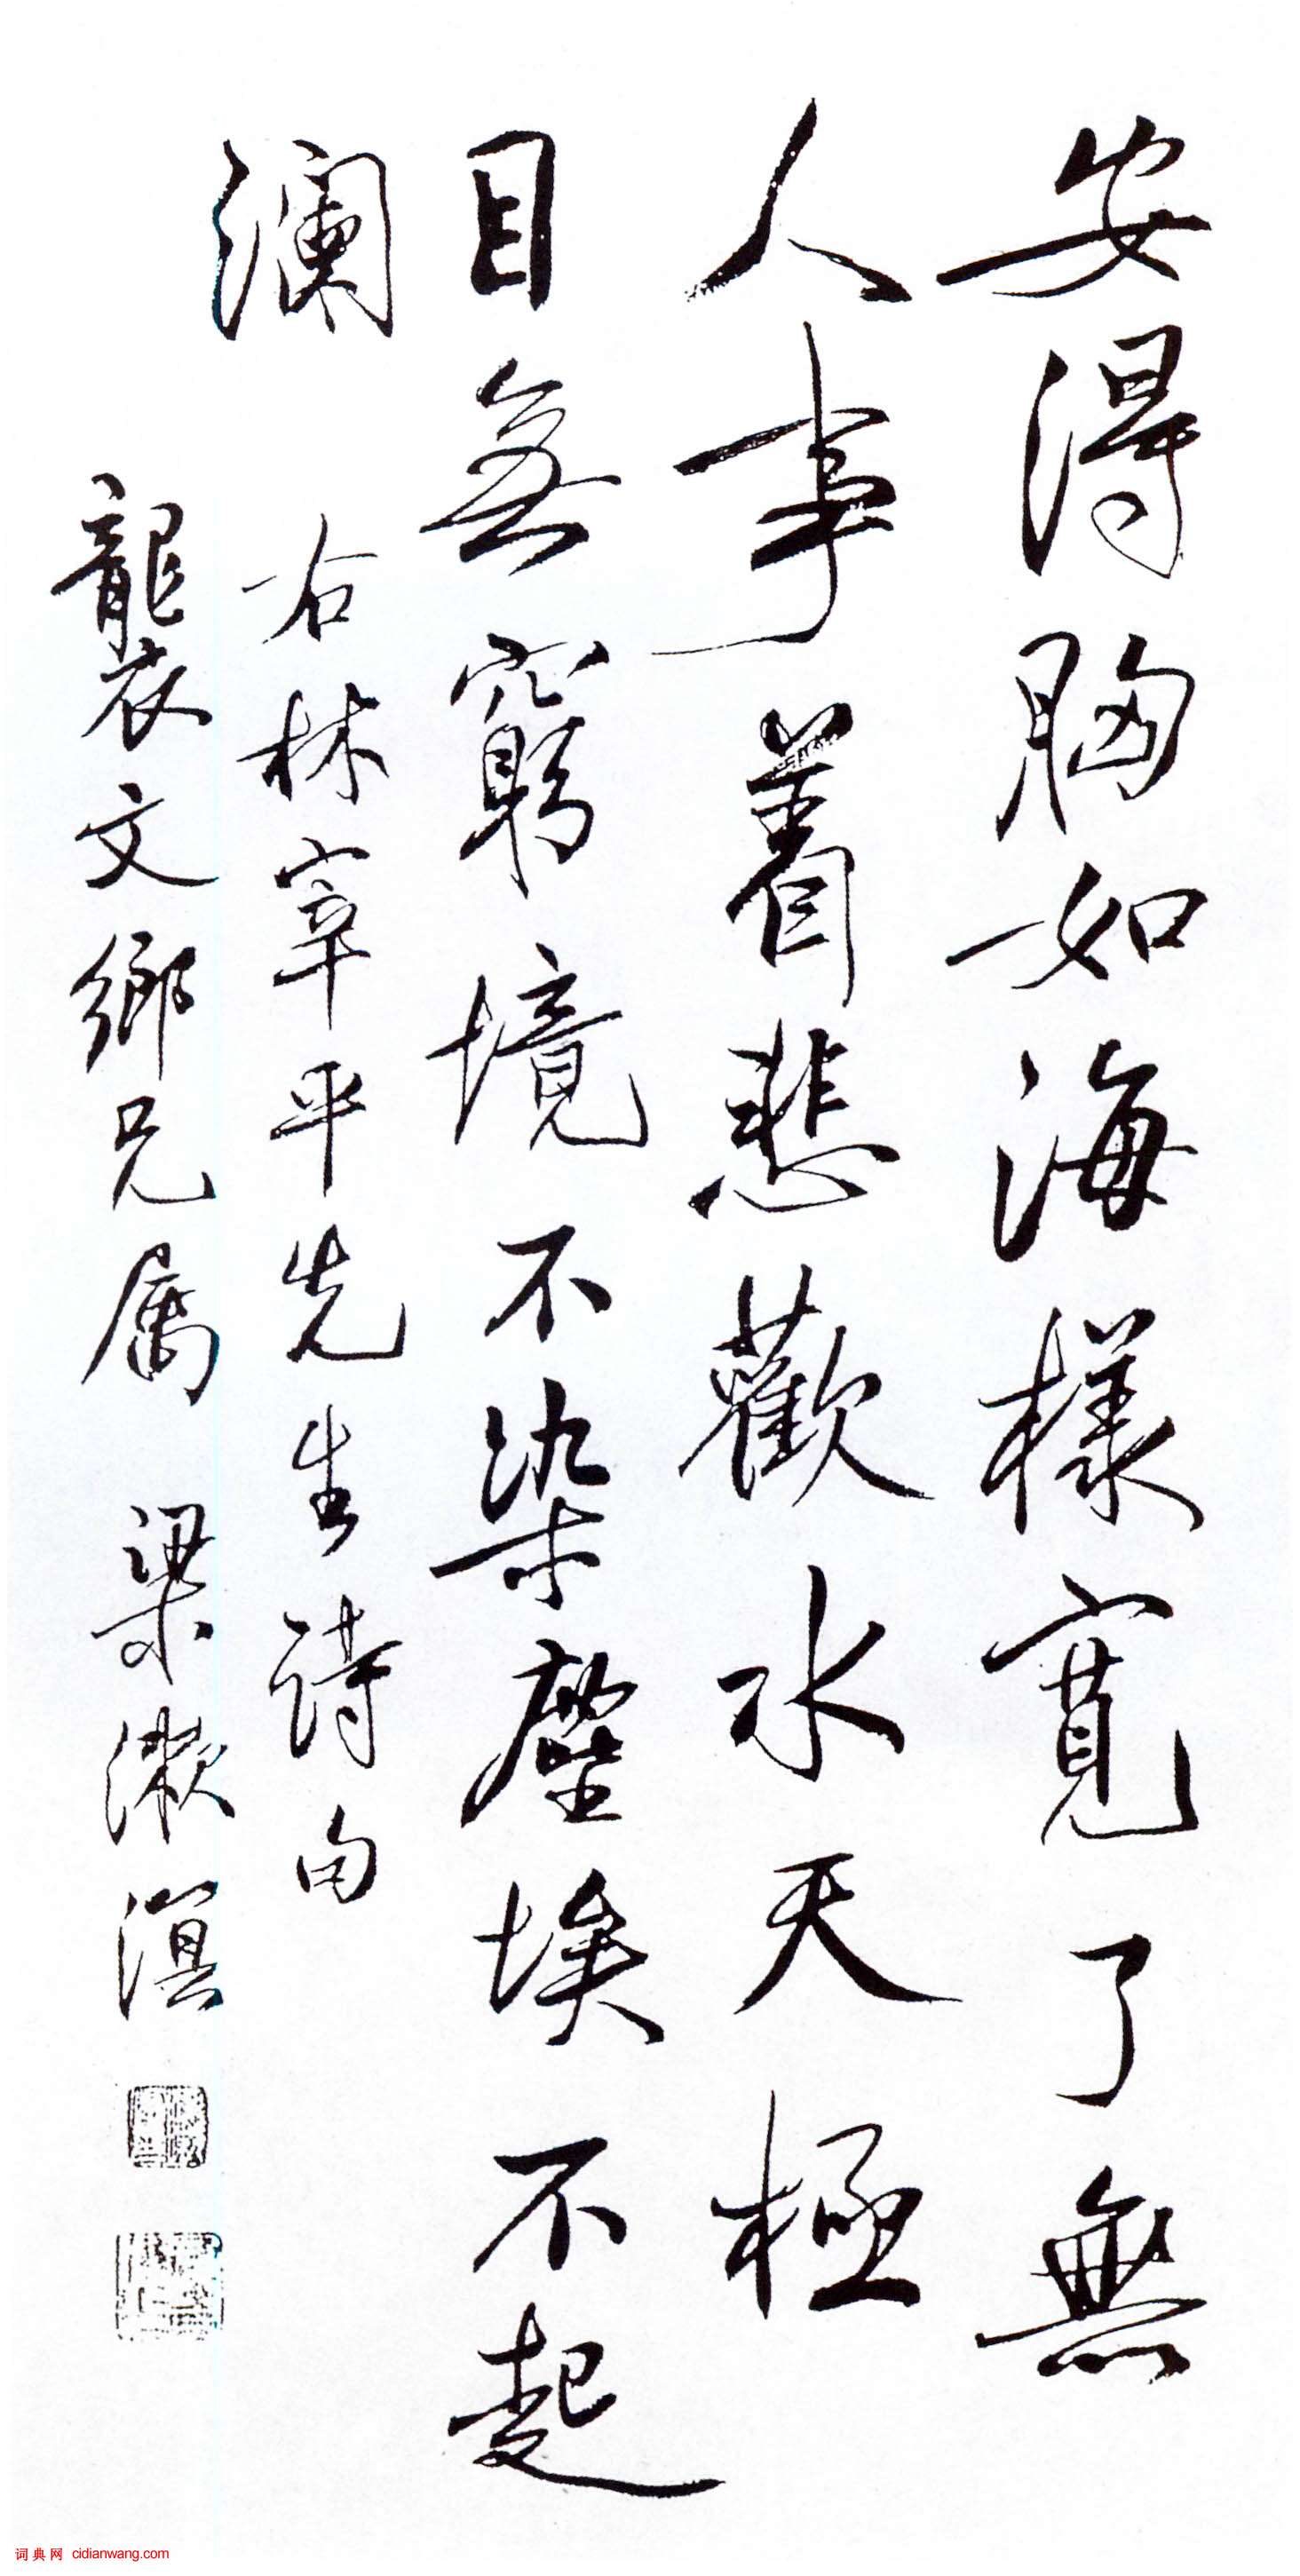 安得胸如海樣寬了無
人事着悲歡水天極
目無窮境不染塵埃不起
瀾
右林宰平先生詩句
襲文鄉兄属 梁漱溟
词典网 cidianwang.com